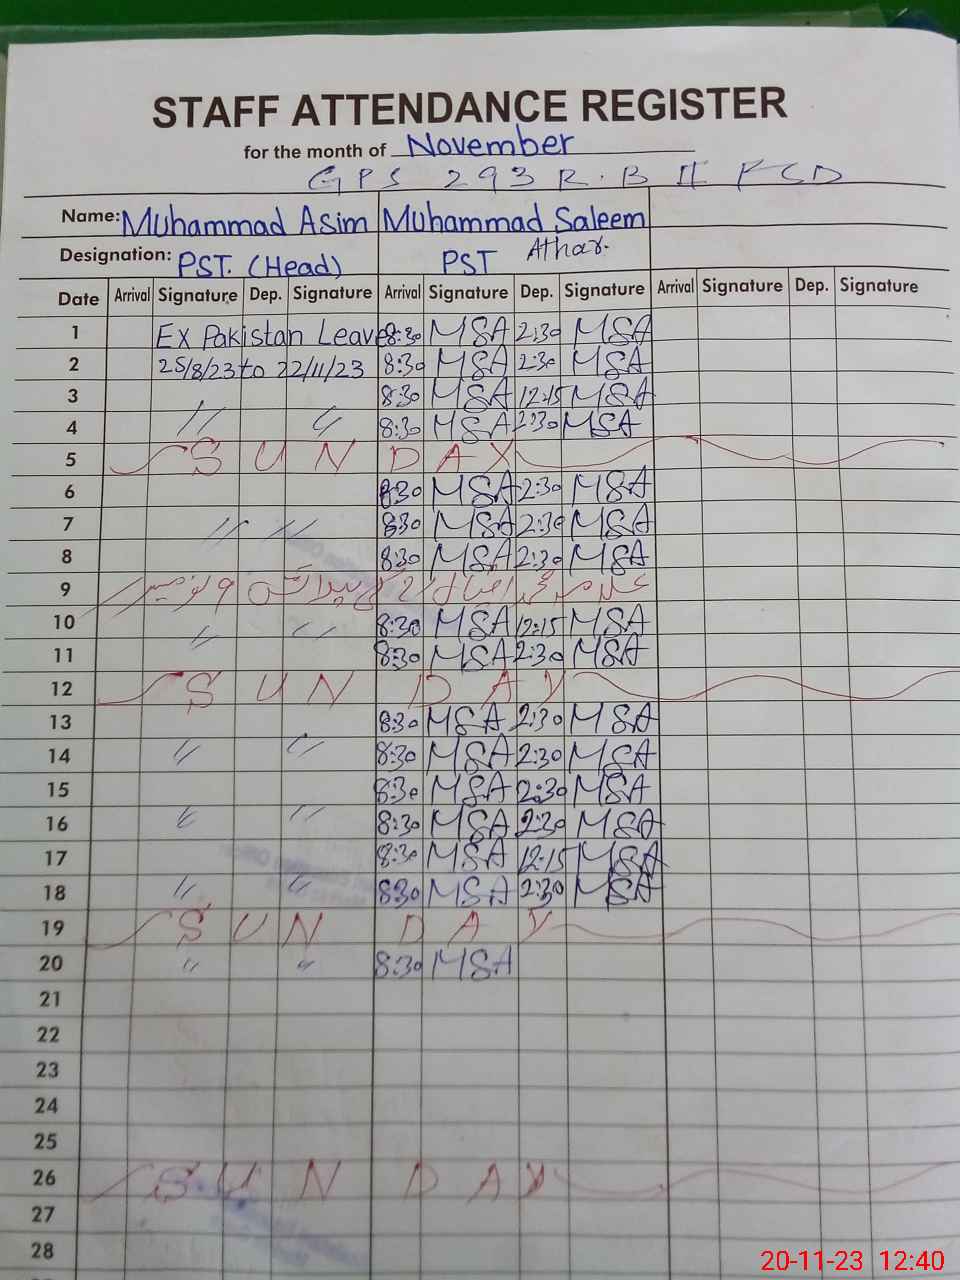 STAFF ATTENDANCE REGISTER
for the month of November
GPS 293 R.B II FSD
Name: Muhammad Asim Muhammad Saleem
Designation: PST. (Head) PST Athar.
Date Arrival Signature Dep. Signature Arrival Signature Dep. Signature Arrival Signature Dep. Signature
1 Ex Pakistan Leave 8:30 MSA 2:30 MSA
2 25/8/23 to 22/11/23 8:30 MSA 2:30 MSA
3 8:30 MSA 12:15 MSA
4 " " 8:30 MSA 2:30 MSA
5 S U N D A Y
6 8:30 MSA 2:30 MSA
7 " " 8:30 MSA 2:30 MSA
8 8:30 MSA 2:30 MSA
9
10 " " 8:30 MSA 12:15 MSA
11 8:30 MSA 2:30 MSA
12 S U N D A Y
13 8:30 MSA 2:30 MSA
14 " " 8:30 MSA 2:30 MSA
15 8:30 MSA 2:30 MSA
16 " " 8:30 MSA 2:30 MSA
17 8:30 MSA 12:15 MSA
18 " " 8:30 MSA 2:30 MSA
19 S U N D A Y
20 " " 8:30 MSA
21
22
23
24
25
26 S U N D A Y
27
28
20-11-23 12:40